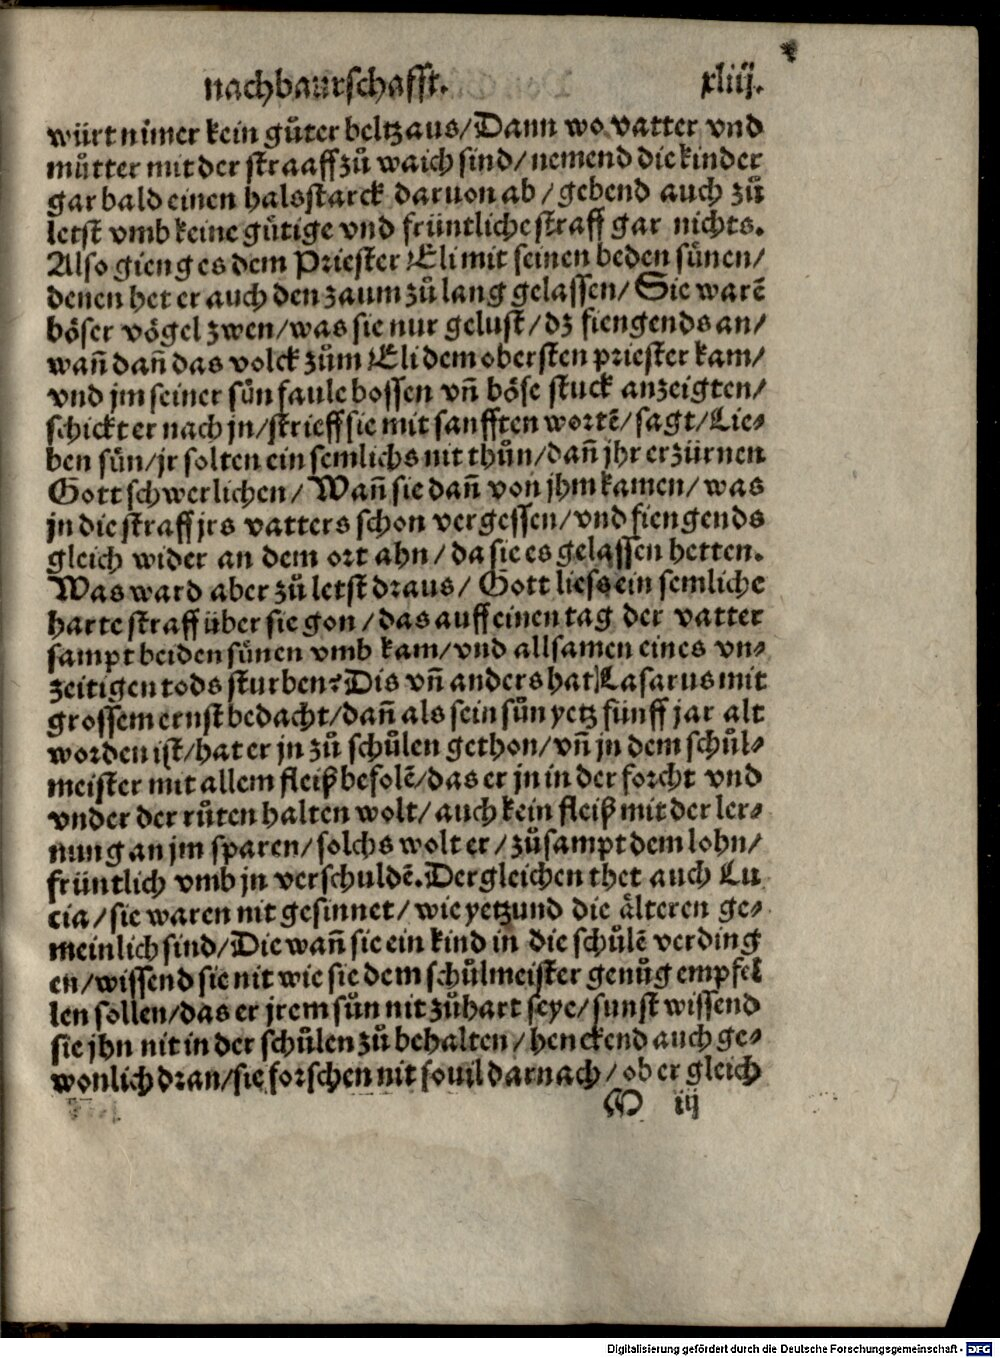 nachbaurschafft.
xliij.
würt nim̃er kein gůter beltz aus/Dann wo vatter vnd
můtter mit der straaff zů waich sind/nemend die kinder
gar bald einen halsstarck daruon ab/gebend auch zů
letst vmb keine gůtige vnd früntliche straff gar nichts.
Also gieng es dem Priester Eli mit seinen beden sünen/
denen het er auch den zaum zů lang gelassen/Sie warẽ
böser vögel zwen/was sie nur gelust/dz fiengends an/
wañ dañ das volck zům Eli dem obersten priester kam/
vnd jm seiner sün faule bossen vñ böse stuck anzeigten/
schickt er nach jn/strieff sie mit sanfften wortẽ/sagt/Lie-
ben sün/jr solten ein semlichs nit thůn/dañ jhr erzürnen
Gott schwerlichen/Wañ sie dañ von jhm kamen/was
jn die straff jrs vatters schon vergessen/vnd fiengends
gleich wider an dem ort ahn/da sie es gelassen hetten.
Was ward aber zů letst draus/Gott lies ein semliche
harte straff über sie gon/das auff einen tag der vatter
sampt beiden sünen vmb kam/vnd allsamen eines vn-
zeitigen tods sturben: Dis vñ anders hat Lasarus mit
grossem ernst bedacht/dañ als sein sun yetz fünff jar alt
worden ist/hat er jn zů schůlen gethon/vñ jn dem schůl-
meister mit allem fleiß befolẽ/das er jn in der forcht vnd
vnder der růten halten wolt/auch kein fleiß mit der ler-
nung an jm sparen/solchs wolt er/zůsampt dem lohn/
früntlich vmb jn verschuldẽ. Dergleichen thet auch Lu
cia/sie waren nit gesinnet/wie yetzund die älteren ge-
meinlich sind/Die wañ sie ein kind in die schůlẽ verding
en/wissend sie nit wie sie dem schůlmeister genůg empfel
len sollen/das er jrem sun nit zůhart seye/sunst wissend
sie jhn nit in der schůlen zů behalten/henckend auch ge-
wonlich dran/sie forschen nit souil darnach/ob er gleich
M iij
Digitalisierung gefördert durch die Deutsche Forschungsgemeinschaft - DFG